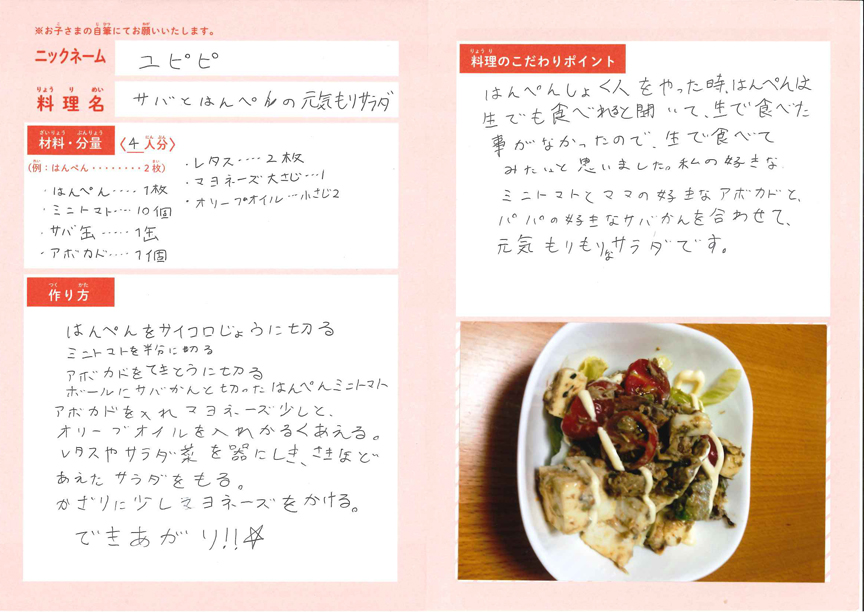 ※お子さまの自筆にてお願いいたします。
ニックネーム
ユピピ
りょうりめい
料理名
サバとはんぺんの元気もりサラダ
ざいりょう ぶんりょう
材料・分量
〈4人分〉
(例：はんぺん・・・・・・・・2枚)
・はんぺん・・・・1枚
・ミニトマト・・・・10個
・サバ缶・・・・・1缶
・アボカド・・・・1個
・レタス・・・・2枚
・マヨネーズ大さじ・・・1
・オリーブオイル・・・小さじ2
つく かた
作り方
はんぺんをサイコロじょうに切る
ミニトマトを半分に切る
アボカドをてきとうに切る
ボールにサバかんと切ったはんぺんミニトマト
アボカドを入れマヨネーズ少しと、
オリーブオイルを入れかるくあえる。
レタスやサラダ菜を器にしき、さきほど
あえたサラダをもる。
かざりに少しマヨネーズをかける。
できあがり!!☆
りょうり
料理のこだわりポイント
はんぺんしょく人をやった時、はんぺんは
生でも食べれると聞いて、生で食べた
事がなかったので、生で食べて
みたいと思いました。私の好きな
ミニトマトとママの好きなアボカドと、
パパの好きなサバかんを合わせて、
元気もりもりなサラダです。